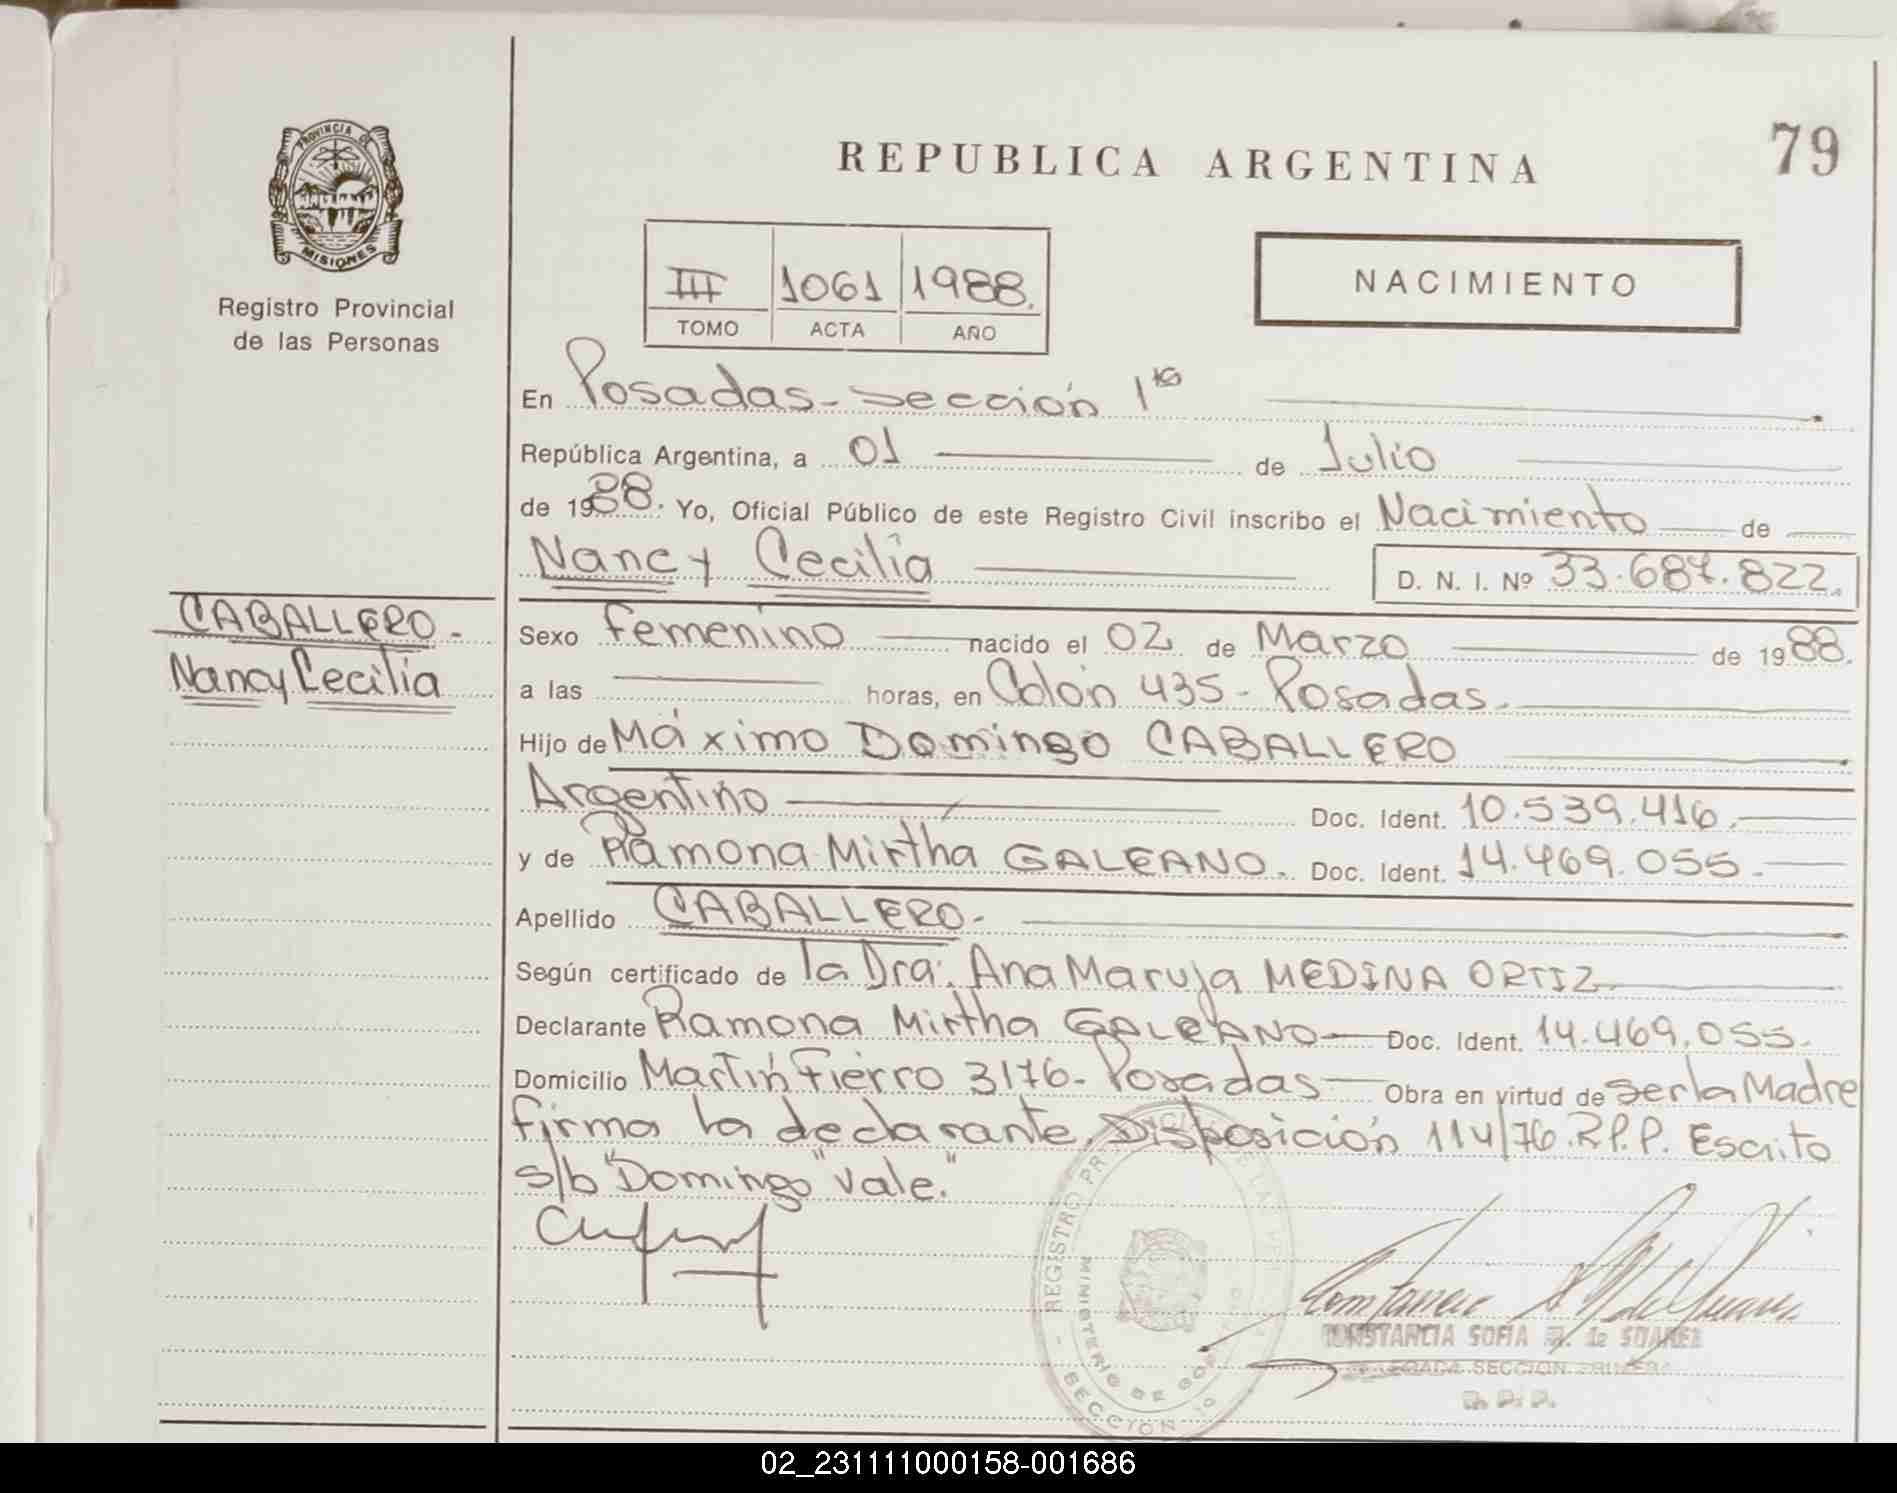 PROVINCIA DE
MISIONES
Registro Provincial
de las Personas
79
REPUBLICA ARGENTINA
III 1061 1988.
TOMO ACTA AÑO
NACIMIENTO
En Posadas - Sección 1ra
República Argentina, a 01 de Julio
de 1988. Yo, Oficial Público de este Registro Civil inscribo el Nacimiento de
Nancy Cecilia D. N. I. Nº 33.687.822.
CABALLERO.
Nancy Cecilia
Sexo femenino nacido el 02 de Marzo de 1988.
a las horas, en Colón 435 - Posadas.
Hijo de Máximo Domingo CABALLERO
Argentino Doc. Ident. 10.539.416.
y de Ramona Mirtha GALEANO. Doc. Ident. 14.469.055.
Apellido CABALLERO.
Según certificado de la Dra. Ana Maruja MEDINA ORTIZ
Declarante Ramona Mirtha GALEANO Doc. Ident. 14.469.055.
Domicilio Martín Fierro 3176 - Posadas Obra en virtud de ser la Madre
firma la declarante. Disposición 114/76. R.P.P. Escrito
s/b "Domingo" vale."
REGISTRO PROVINCIAL DE LAS
MINISTERIO DE GOB
SECCION 1a
CONSTANCIA SOFIA de SUAREZ
DELEGADA SECCION PRIMERA
R. P. P.
02_231111000158-001686